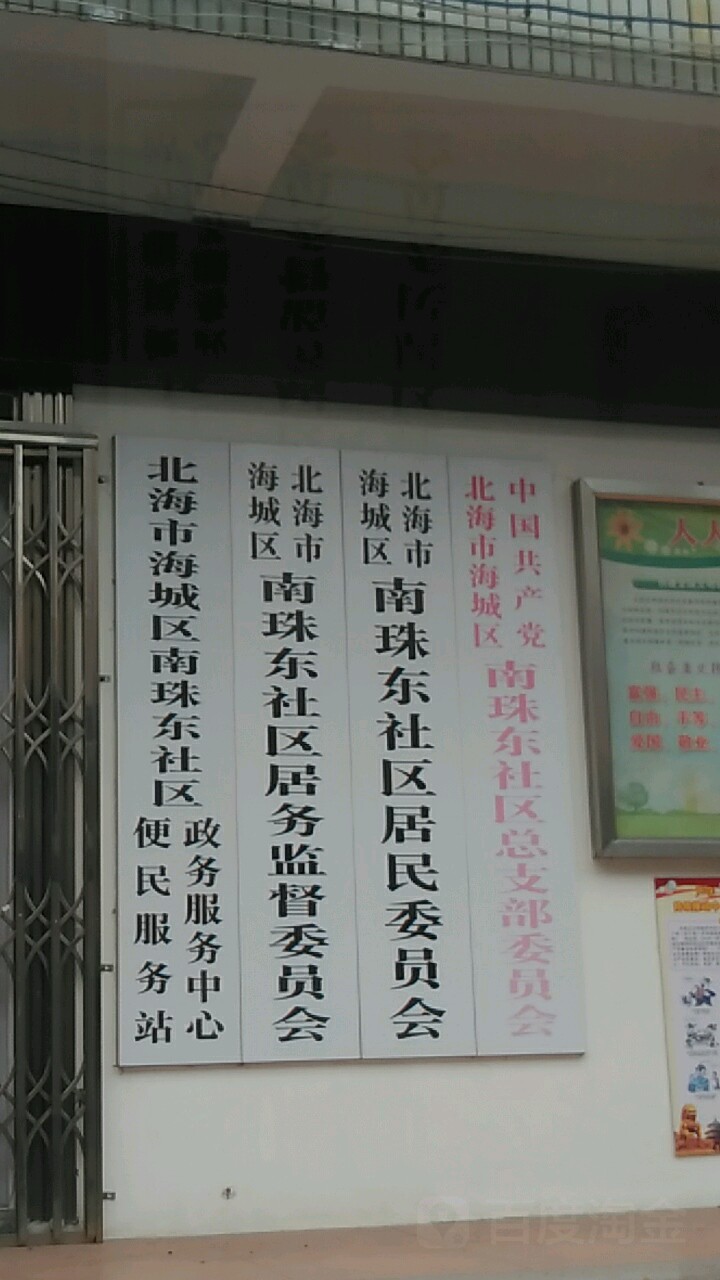 中国共产党
北海市海城区
南珠东社区总支部委员会
北海市
海城区
南珠东社区居民委员会
北海市
海城区
南珠东社区居务监督委员会
北海市海城区南珠东社区
政务服务中心
便民服务站
人人
富强 民主
自由 平等
爱国 敬业
百度淘金